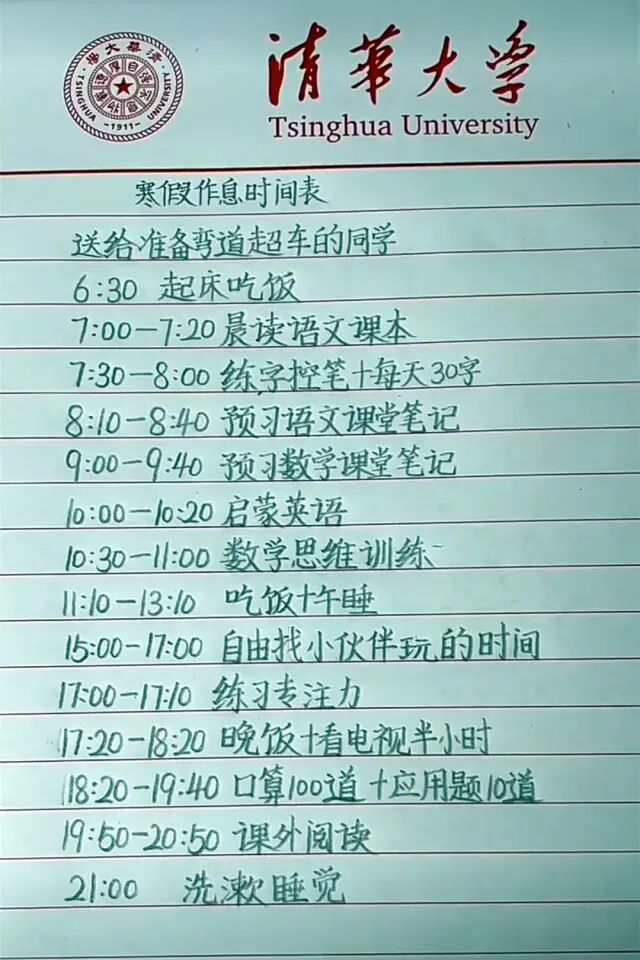 清華大学
Tsinghua University
清華大學
自强不息
厚德载物
TSINGHUA UNIVERSITY
-1911-
寒假作息时间表
送给准备弯道超车的同学
6:30 起床吃饭
7:00-7:20 晨读语文课本
7:30-8:00 练字控笔+每天30字
8:10-8:40 预习语文课堂笔记
9:00-9:40 预习数学课堂笔记
10:00-10:20 启蒙英语
10:30-11:00 数学思维训练
11:10-13:10 吃饭+午睡
15:00-17:00 自由找小伙伴玩的时间
17:00-17:10 练习专注力
17:20-18:20 晚饭+看电视半小时
18:20-19:40 口算100道+应用题10道
19:50-20:50 课外阅读
21:00 洗漱睡觉